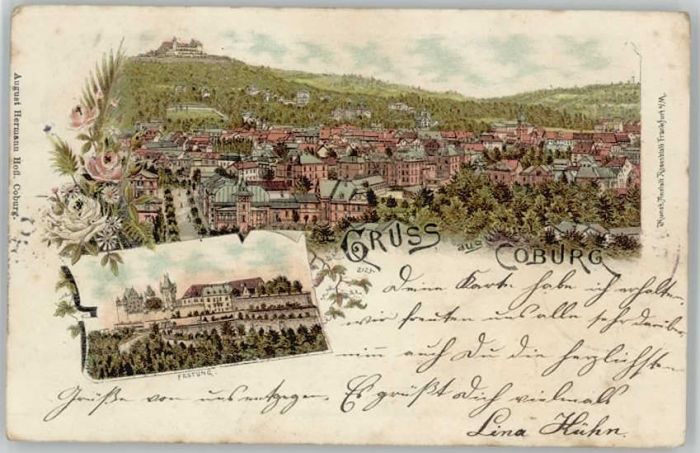 August Hermann Hofl. Coburg.
Kunst-Anstalt Rosenblatt Frankfurt a/M.
GRUSS aus COBURG
2121.
FESTUNG.
Deine Karte habe ich erhalten,
wir freuten uns alle sehr darüber,
nimm auch Du die herzlichsten
Grüße von uns entgegen. Es grüßt Dich vielmals
Lina Hühn.